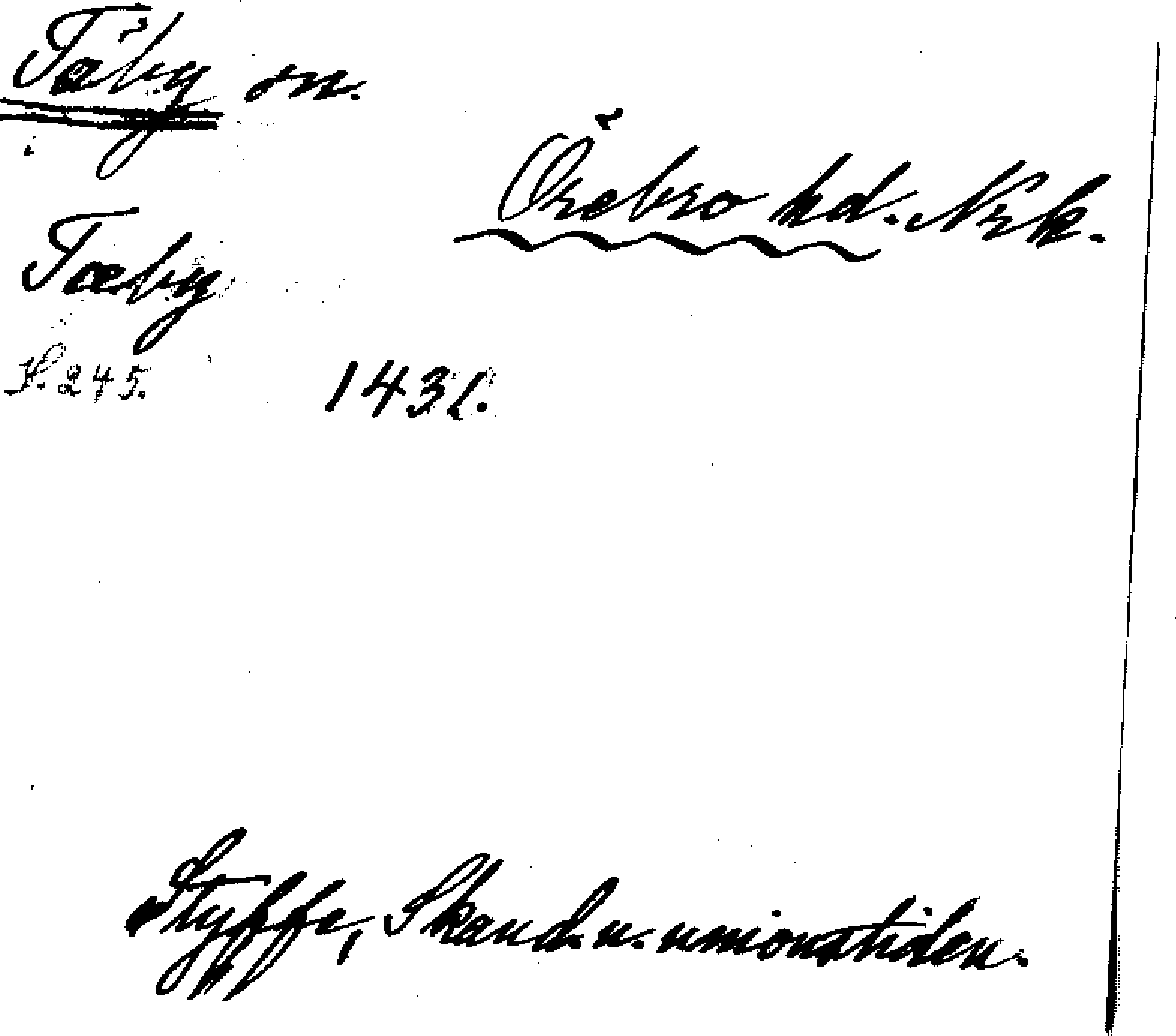 Täby sn.
Örebro hd. Nrk.
Tæby
S. 245. 1431.
Styffe, Skand. u. unionstiden.